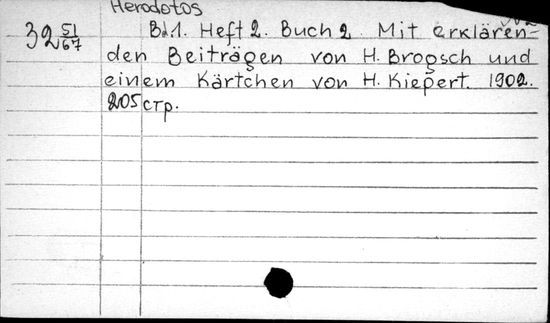 Herodotos
32 51/67 Bd1. Heft 2. Buch 2 Mit erklären-
den Beiträgen von H. Brogsch und
einem Kärtchen von H. Kiepert. 1902.
205 стр.